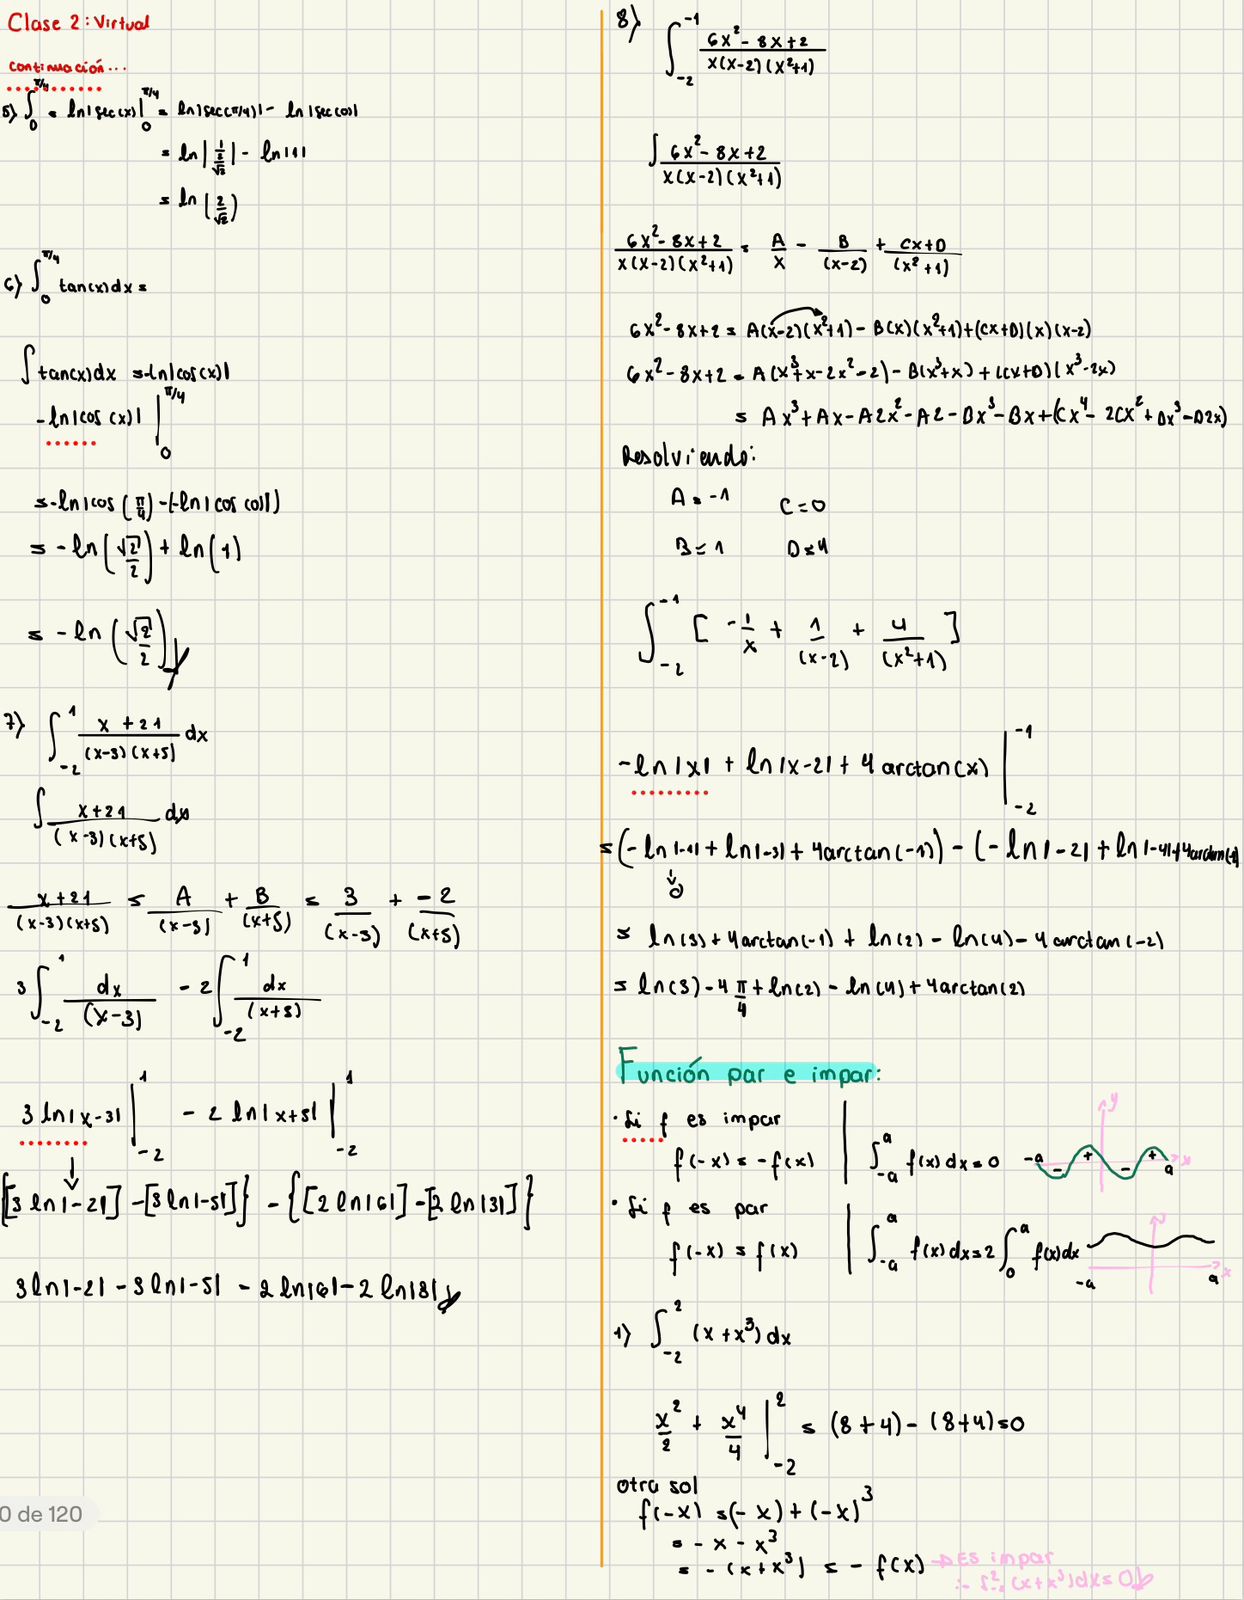 Clase 2: Virtual
continuación...
5) ∫_0^{π/4} = ln|sec(x)| |_0^{π/4} = ln|sec(π/4)| - ln|sec(0)|
= ln|1/(2/√2)| - ln|1|
= ln(2/√2)
6) ∫_0^{π/4} tan(x)dx =
∫ tan(x)dx = -ln|cos(x)|
-ln|cos(x)| |_0^{π/4}
= -ln|cos(π/4) - (-ln|cos(0)|)
= -ln(√2/2) + ln(1)
= -ln(√2/2)
7) ∫_{-2}^1 (x+21)/((x-3)(x+5)) dx
∫ (x+21)/((x-3)(x+5)) dx
(x+21)/((x-3)(x+5)) = A/(x-3) + B/(x+5) = 3/(x-3) + -2/(x+5)
3∫_{-2}^1 dx/(x-3) - 2∫_{-2}^1 dx/(x+5)
3 ln|x-3| |_{-2}^1 - 2 ln|x+5| |_{-2}^1
{[3 ln|-2|] - [3 ln|-5|]} - {[2 ln|6|] - [2 ln|3|]}
3 ln|-2| - 3 ln|-5| - 2 ln|6| - 2 ln|3|
0 de 120
8) ∫_{-2}^{-1} (6x²-8x+2)/(x(x-2)(x²+1))
∫ (6x²-8x+2)/(x(x-2)(x²+1))
(6x²-8x+2)/(x(x-2)(x²+1)) = A/x - B/(x-2) + (Cx+D)/(x²+1)
6x²-8x+2 = A(x-2)(x²+1) - B(x)(x²+1) + (Cx+D)(x)(x-2)
6x²-8x+2 = A(x³+x-2x²-2) - B(x³+x) + (Cx+D)(x³-2x)
= Ax³+Ax-A2x²-A2-Bx³-Bx+(Cx⁴-2Cx²+Dx³-D2x)
Resolviendo:
A = -1 C = 0
B = 1 D = 4
∫_{-2}^{-1} [-1/x + 1/(x-2) + 4/(x²+1)]
-ln|x| + ln|x-2| + 4 arctan(x) |_{-2}^{-1}
= (-ln|-1| + ln|-3| + 4arctan(-1)) - (-ln|-2| + ln|-4| + 4arctan(-2)
↓
0
= ln(3) + 4arctan(-1) + ln(2) - ln(4) - 4 arctan(-2)
= ln(3) - 4 π/4 + ln(2) - ln(4) + 4arctan(2)
Función par e impar:
· Si f es impar
f(-x) = -f(x) | ∫_{-a}^a f(x)dx = 0
-a - + - + a x y
· Si f es par
f(-x) = f(x) | ∫_{-a}^a f(x)dx = 2∫_0^a f(x)dx
-a a x
1) ∫_{-2}^2 (x+x³)dx
x²/2 + x⁴/4 |_{-2}^2 = (8+4) - (8+4) = 0
otra sol
f(-x) = (-x) + (-x)³
= -x - x³
= -(x+x³) = -f(x) → Es impar
∴ ∫_{-2}^2 (x+x³)dx = 0